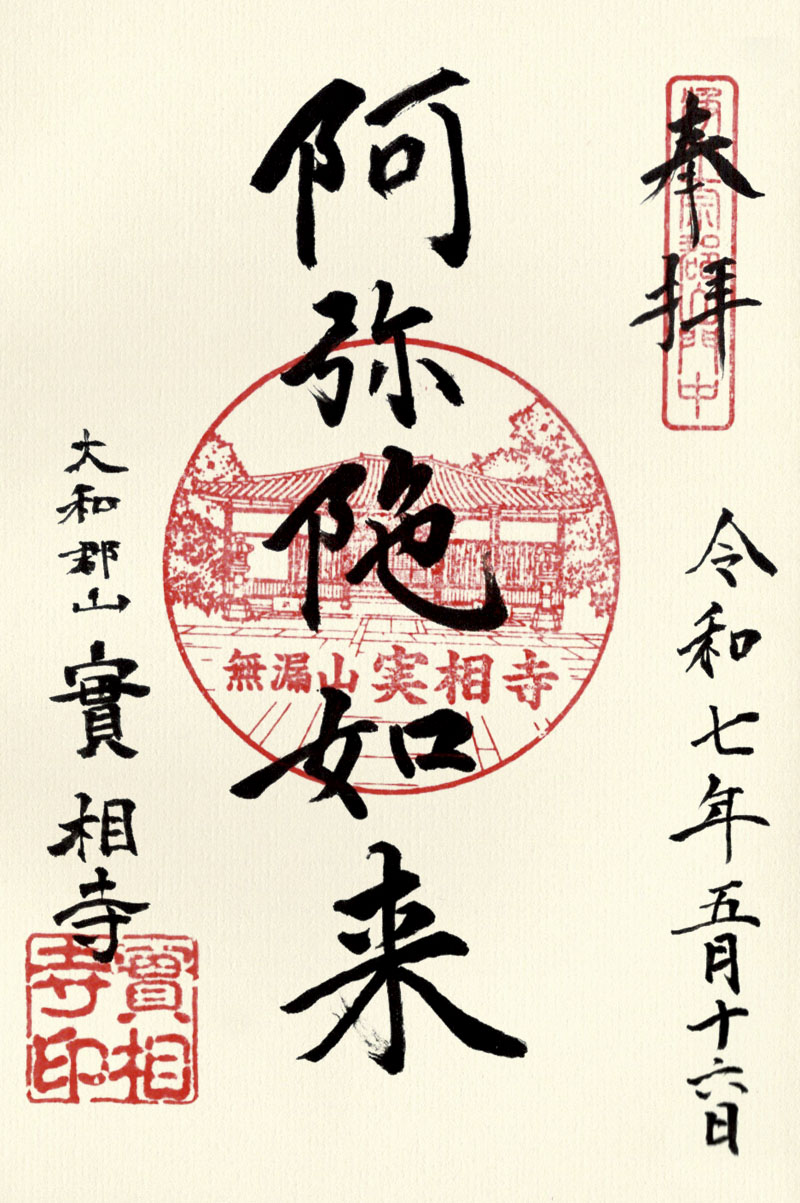 奉拝
令和七年五月十六日
阿弥陀如来
無漏山実相寺
大和郡山 實相寺
實相
寺印